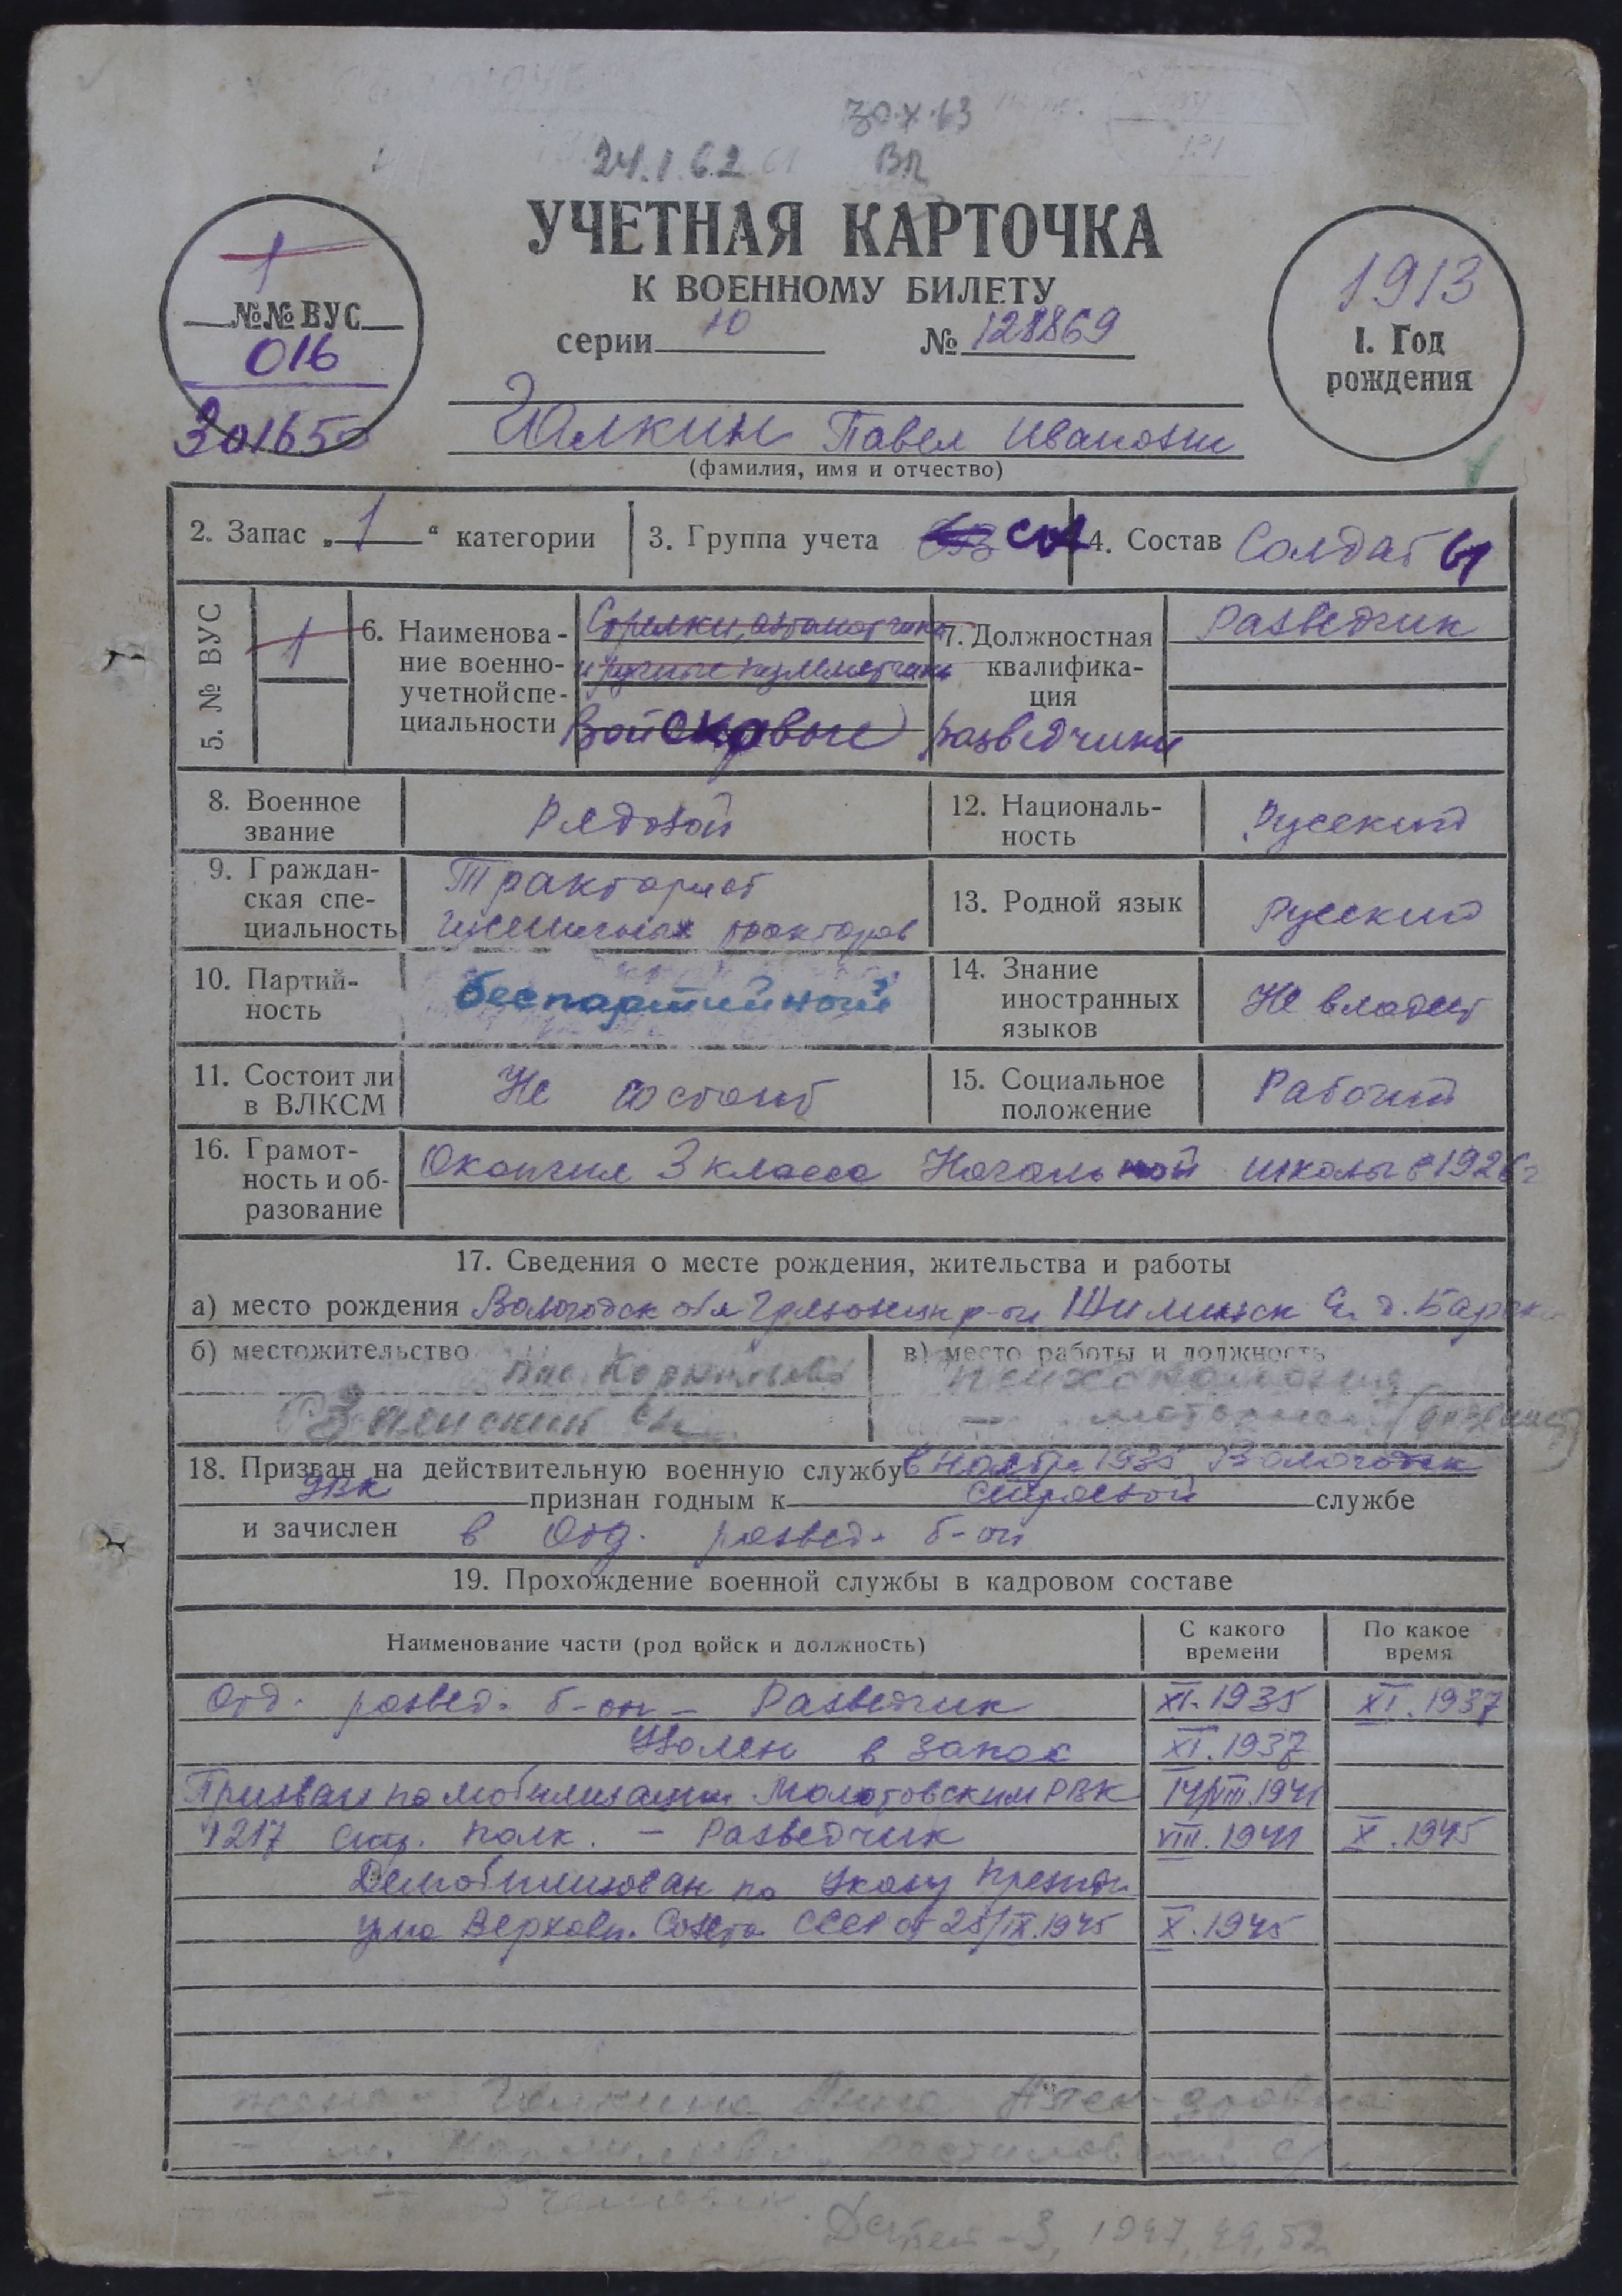 30.X.63
24.I.62
ВП
УЧЕТНАЯ КАРТОЧКА
К ВОЕННОМУ БИЛЕТУ
серии 10 № 128869
1
№№ ВУС
016
301650
1913
1. Год
рождения
Галкин Павел Иванович
(фамилия, имя и отчество)
2. Запас „1“ категории
3. Группа учета СА
4. Состав Солдаты
5. № ВУС
1
6. Наименова-
ние военно-
учетной спе-
циальности
Стрелки, автоматчики
и ручные пулеметчики
Войсковые разведчики
7. Должностная
квалифика-
ция
Разведчик
8. Военное
звание
Рядовой
12. Националь-
ность
Русский
9. Граждан-
ская спе-
циальность
Тракторист
гусеничных тракторов
13. Родной язык
Русский
10. Партий-
ность
беспартийный
14. Знание
иностранных
языков
Не владеет
11. Состоит ли
в ВЛКСМ
Не состоит
15. Социальное
положение
Рабочий
16. Грамот-
ность и об-
разование
Окончил 3 класса Начальной школы в 1926 г
17. Сведения о месте рождения, жительства и работы
а) место рождения Вологодск обл р-он
б) местожительство
в) место работы и должность
18. Призван на действительную военную службу в ноябре 1935 Вологодск
РВК признан годным к строевой службе
и зачислен в Отд. развед. б-он
19. Прохождение военной службы в кадровом составе
Наименование части (род войск и должность)
С какого
времени
По какое
время
Отд. развед. б-он – Разведчик XI.1935 XI.1937
Уволен в запас XI.1937
Призван по мобилизации Молотовским РВК 14/VIII.1941
1217 стр. полк. – Разведчик VIII.1941 X.1945
Демобилизован по Указу Президи
ума Верховн. Совета СССР от 25/IX.1945 X.1945
жена – Галкина Анна
Детей – 3, 1947, 49, 52